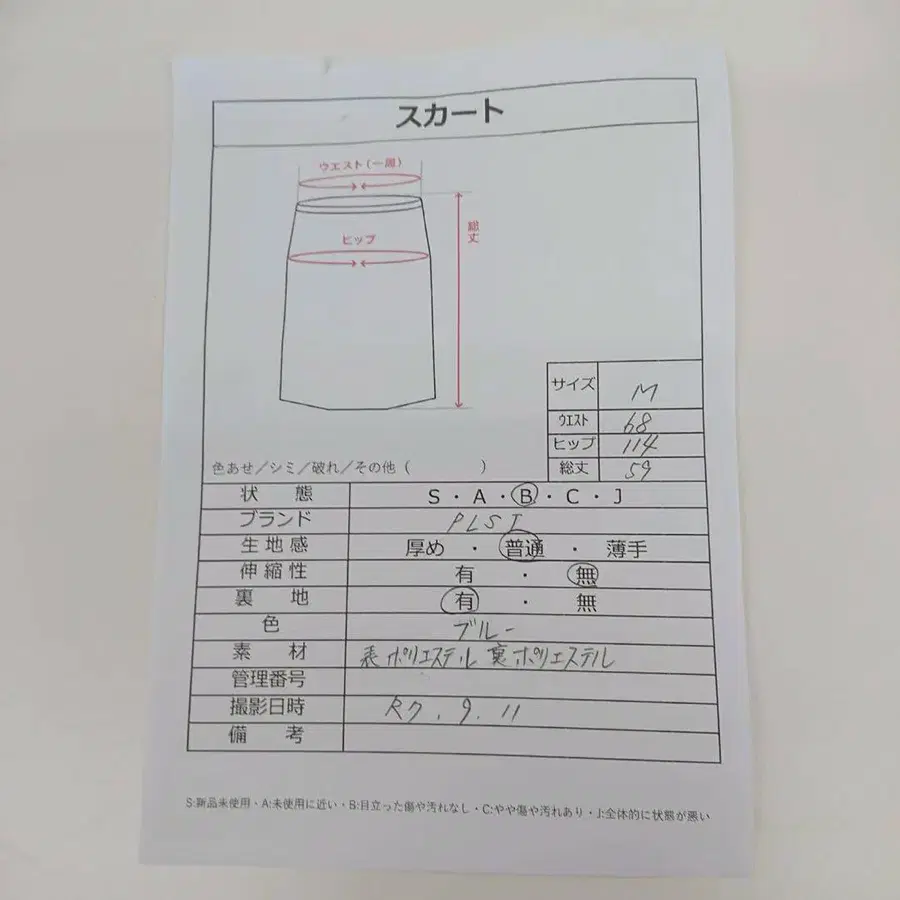 スカート
ウエスト(一周)
総丈
ヒップ
サイズ M
ウエスト 68
ヒップ 114
総丈 59
色あせ/シミ/破れ/その他 ( )
状態 S・A・B・C・J
ブランド PLST
生地感 厚め ・ 普通 ・ 薄手
伸縮性 有 ・ 無
裏地 有 ・ 無
色 ブルー
素材 表ポリエステル 裏ポリエステル
管理番号
撮影日時 R7.9.11
備考
S:新品未使用・A:未使用に近い・B:目立った傷や汚れなし・C:やや傷や汚れあり・J:全体的に状態が悪い